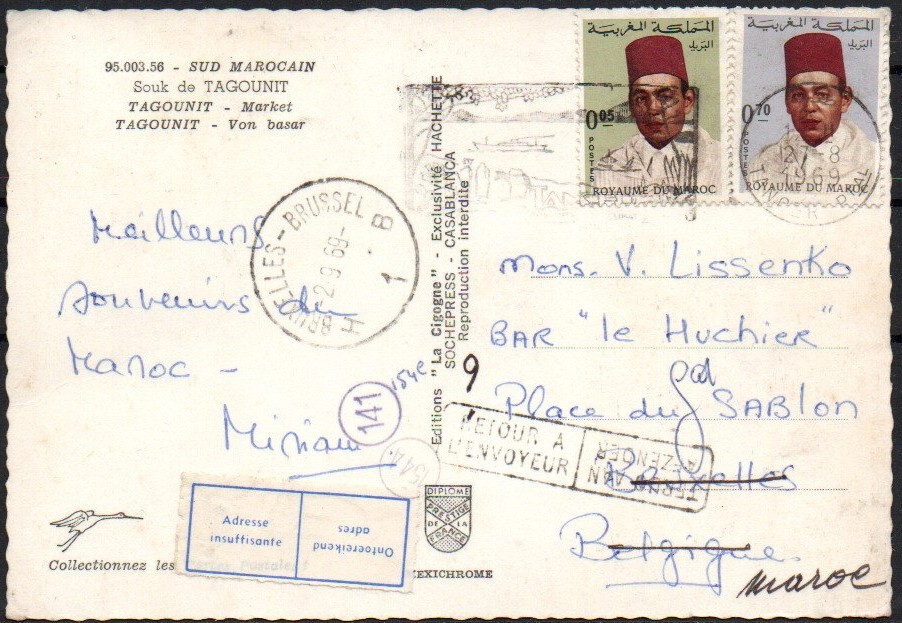 95.003.56 - SUD MAROCAIN
Souk de TAGOUNIT
TAGOUNIT - Market
TAGOUNIT - Von basar
المملكة المغربية
البريد
0.05
POSTES
ROYAUME DU MAROC
المملكة المغربية
البريد
0.70
POSTES
ROYAUME DU MAROC
27-8
1969
TANGER
BRUXELLES - BRUSSEL
-2.9.69-
1
B
Meilleurs
souvenirs du
Maroc -
Miriam
Editions "La Cigogne" - Exclusivité HACHETTE
SOCHEPRESS - CASABLANCA
Reproduction interdite
Mons. V. Lissenko
BAR "le Huchier"
Place du Gd SABlon
Bruxelles
Belgique
maroc
9
154e
141
RETOUR A
L'ENVOYEUR
TERUG AAN
AFZENDER
Adresse
insuffisante
Ontoereikend
adres
DIPLOME
PRESTIGE
DE LA
FRANCE
Collectionnez les Cartes Postales !
MEXICHROME